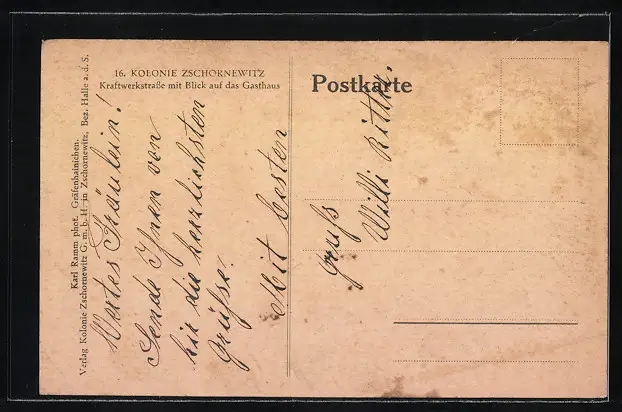 16. KOLONIE ZSCHORNEWITZ
Kraftwerkstraße mit Blick auf das Gasthaus
Postkarte
Karl Ramm phot. Gräfenhainichen.
Verlag Kolonie Zschornewitz G. m. b. H. in Zschornewitz, Bez. Halle a. d. S.
Wertes Fräulein!
Sende Ihnen von
hir die herzlichsten
Grüsse.
Mit besten
Gruß
Willi